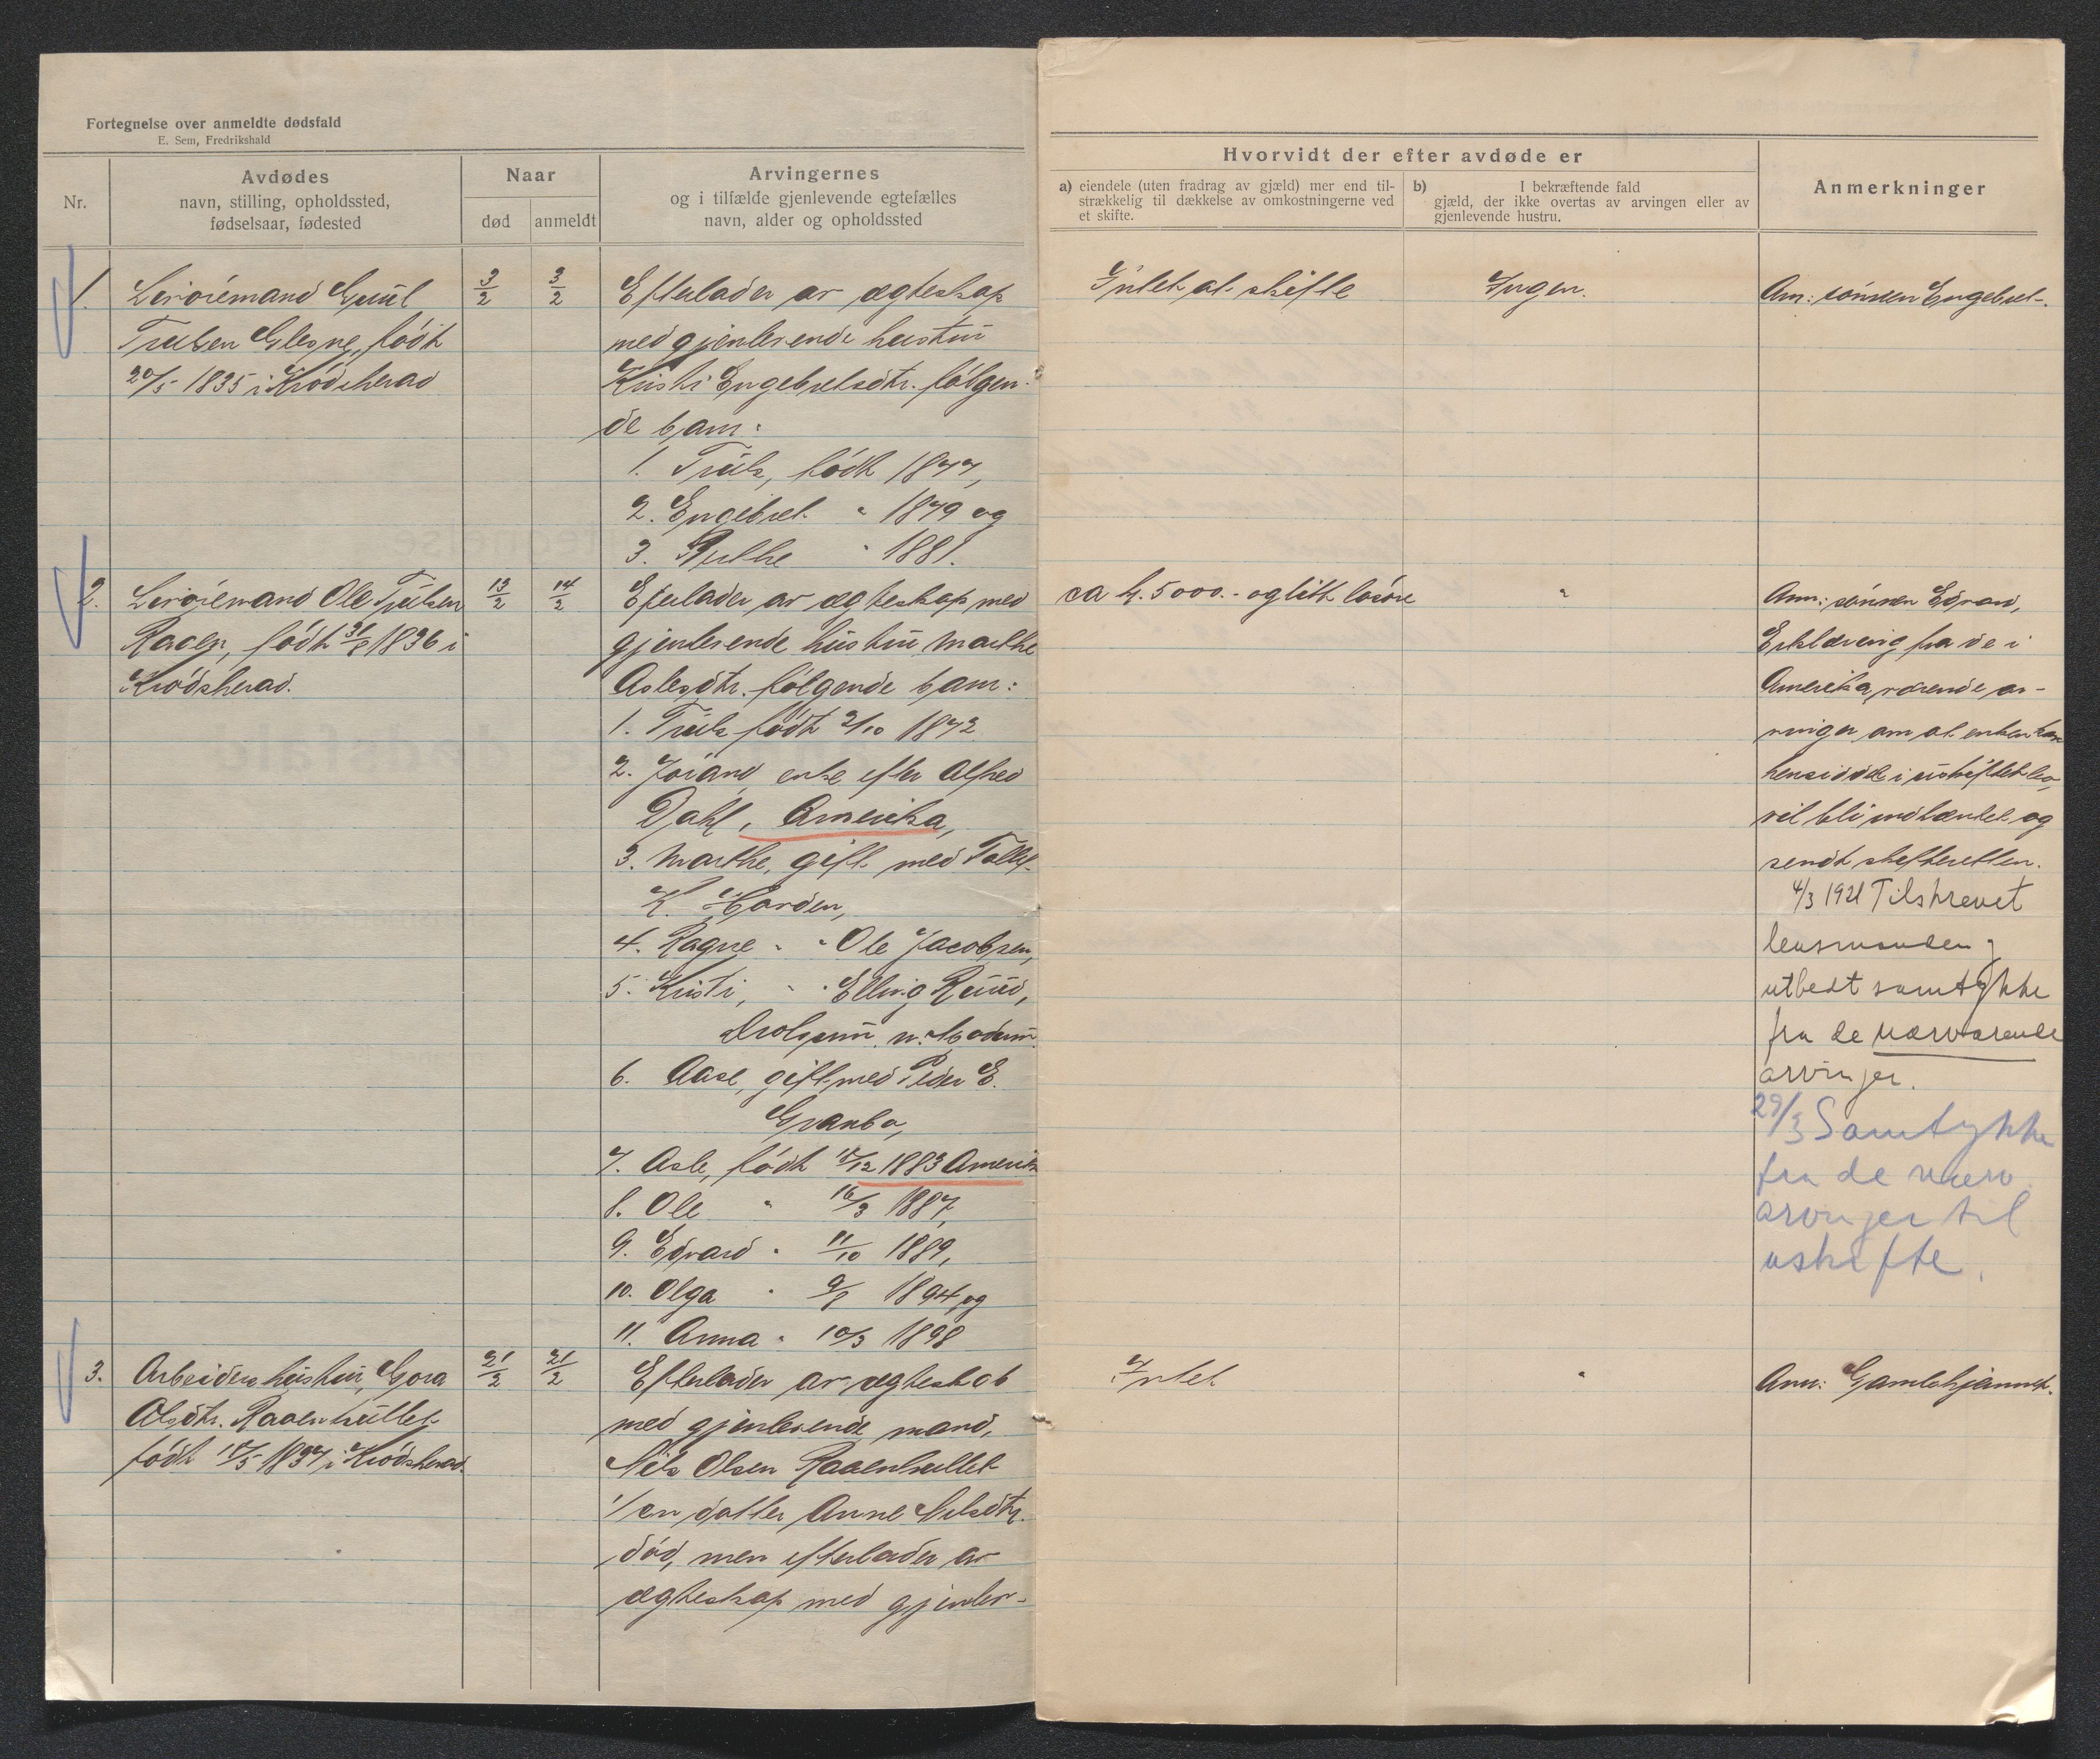 Fortegnelse over anmeldte dødsfald
E. Sem, Fredrikshald
Nr.
Avdødes
navn, stilling, opholdssted,
fødselsaar, fødested
Naar
død
anmeldt
Arvingernes
og i tilfælde gjenlevende egtefælles
navn, alder og opholdssted
Hvorvidt der efter avdøde er
a) eiendele (uten fradrag av gjæld) mer end til-
strækkelig til dækkelse av omkostningerne ved
et skifte.
b) I bekræftende fald
gjæld, der ikke overtas av arvingen eller av
gjenlevende hustru.
Anmerkninger
1. Livøremand Gruul
Trulsen Glesne, født
20/5 1835 i Krødsherad
3/2
3/2
Efterlader av ægteskap
med gjenlevende hustru
Kristi Engebretsdtr. følgen-
de barn:
1. Truls, født 1877,
2. Engebret " 1879 og
3. " 1881.
Intet at skifte
Ingen.
Anm: sønnen Engebret.
2. Livøremand Ole Trulsen
Raaen, født 31/8 1836 i
Krødsherad.
13/2
14/2
Efterlader av ægteskap med
gjenlevende hustru Marthe
Aslesdtr. følgende barn:
1. Truls født 2/10 1872
2. Jørand, enke efter Alfred
Dahl, Amerika,
3. Marthe, gift med Tollef
K.
4. Ragne " " Ole Jacobsen,
5. Kristi, " " Elling Ruud,
n. Modum.
6. Aase, gift med Peder E.
Granbo,
7. Asle, født 15/12 1883 Amerik
8. Ole " 16/3 1887,
9. Edvard " 11/10 1889,
10. Olga " 9/8 1894, og
11. Anna " 10/3 1898
ca kr. 5000.- og litt løsøre
"
Anm: sønnen Edvard,
Erklæring fra de i
Amerika værende ar-
vinger om at enken kan
hensidde i uskiftet bo,
vil bli indhentet og
sendt skifteretten.
4/3 1921 Tilskrevet
lensmanden,
utbedt samtykke
fra de nærværende
arvinger.
29/3 Samtykke
fra de nærv.
arvinger til
uskifte.
3. Arbeiders hustru, Gora
Olsdtr. Raaenhullet
født 15/5 1837 i Krødsherad.
21/2
21/2
Efterlader av ægteskab
med gjenlevende mand,
Nils Olsen Raaenhullet
1/ en datter Anne Nilsdtr.
død, men efterlader av
ægteskap med gjenlev-
Intet
"
Anm: Gamlehjemmet.